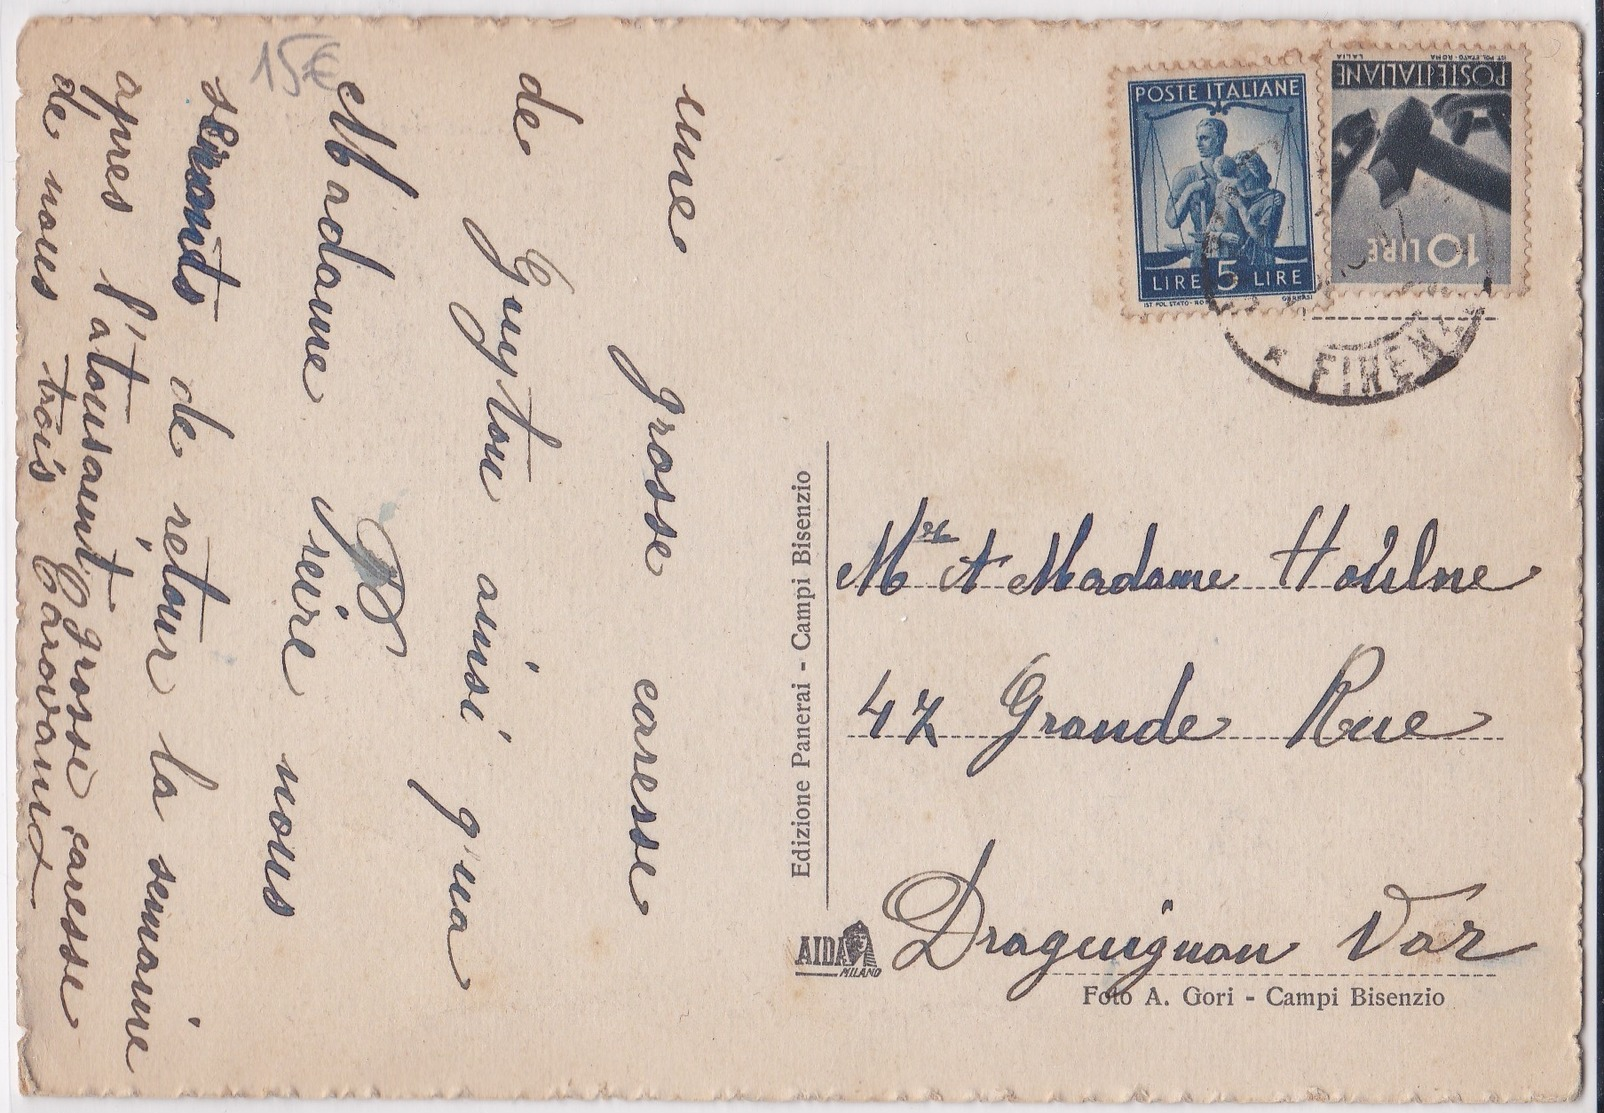 une grosse caresse
de Guyton ainsi q'ua
Madame Peire nous
PS
seronts de retour la semaine
apres l'atousaint. grosse caresse
de nous trois Carovanid
15€
POSTE ITALIANE
LIRE 5 LIRE
POSTE ITALIANE
10 LIRE
FIRENZE
Edizione Panerai - Campi Bisenzio
Mr et Madame Houlne
47 Grande Rue
Draguignan Var
AIDA
MILANO
Foto A. Gori - Campi Bisenzio